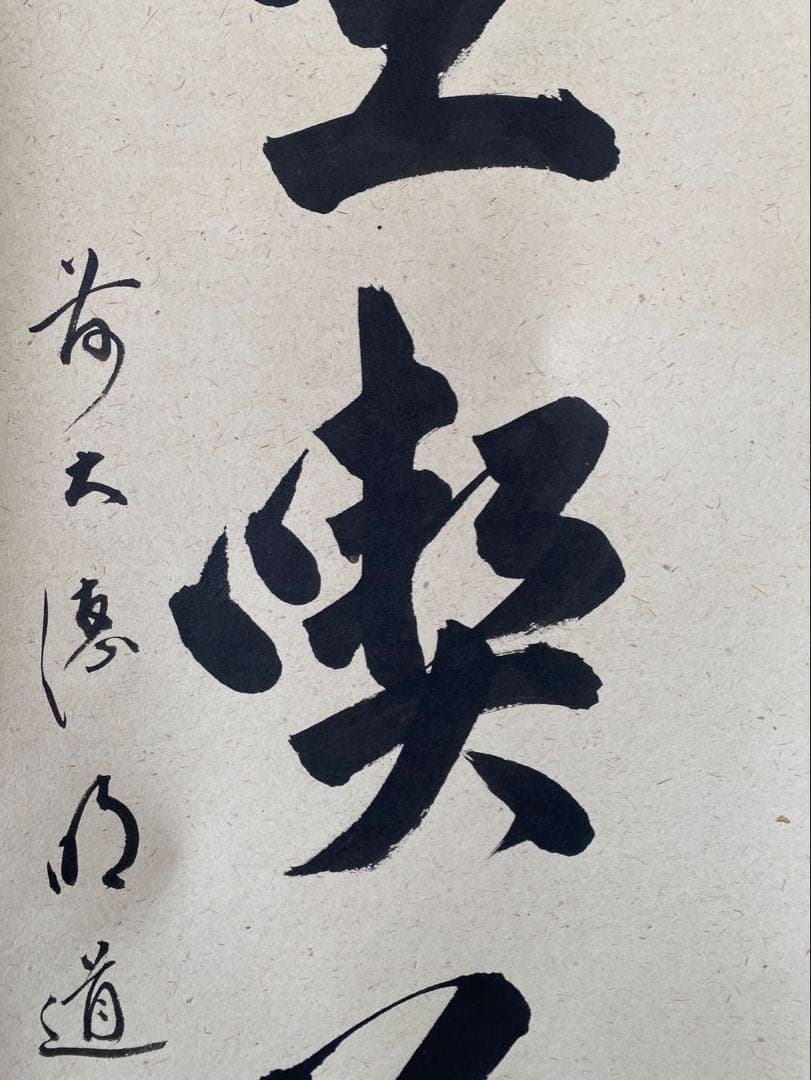 喫
前大徳明道